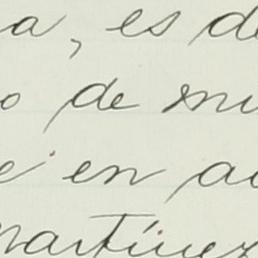 a, es de
o de mu
e en a
Martínez